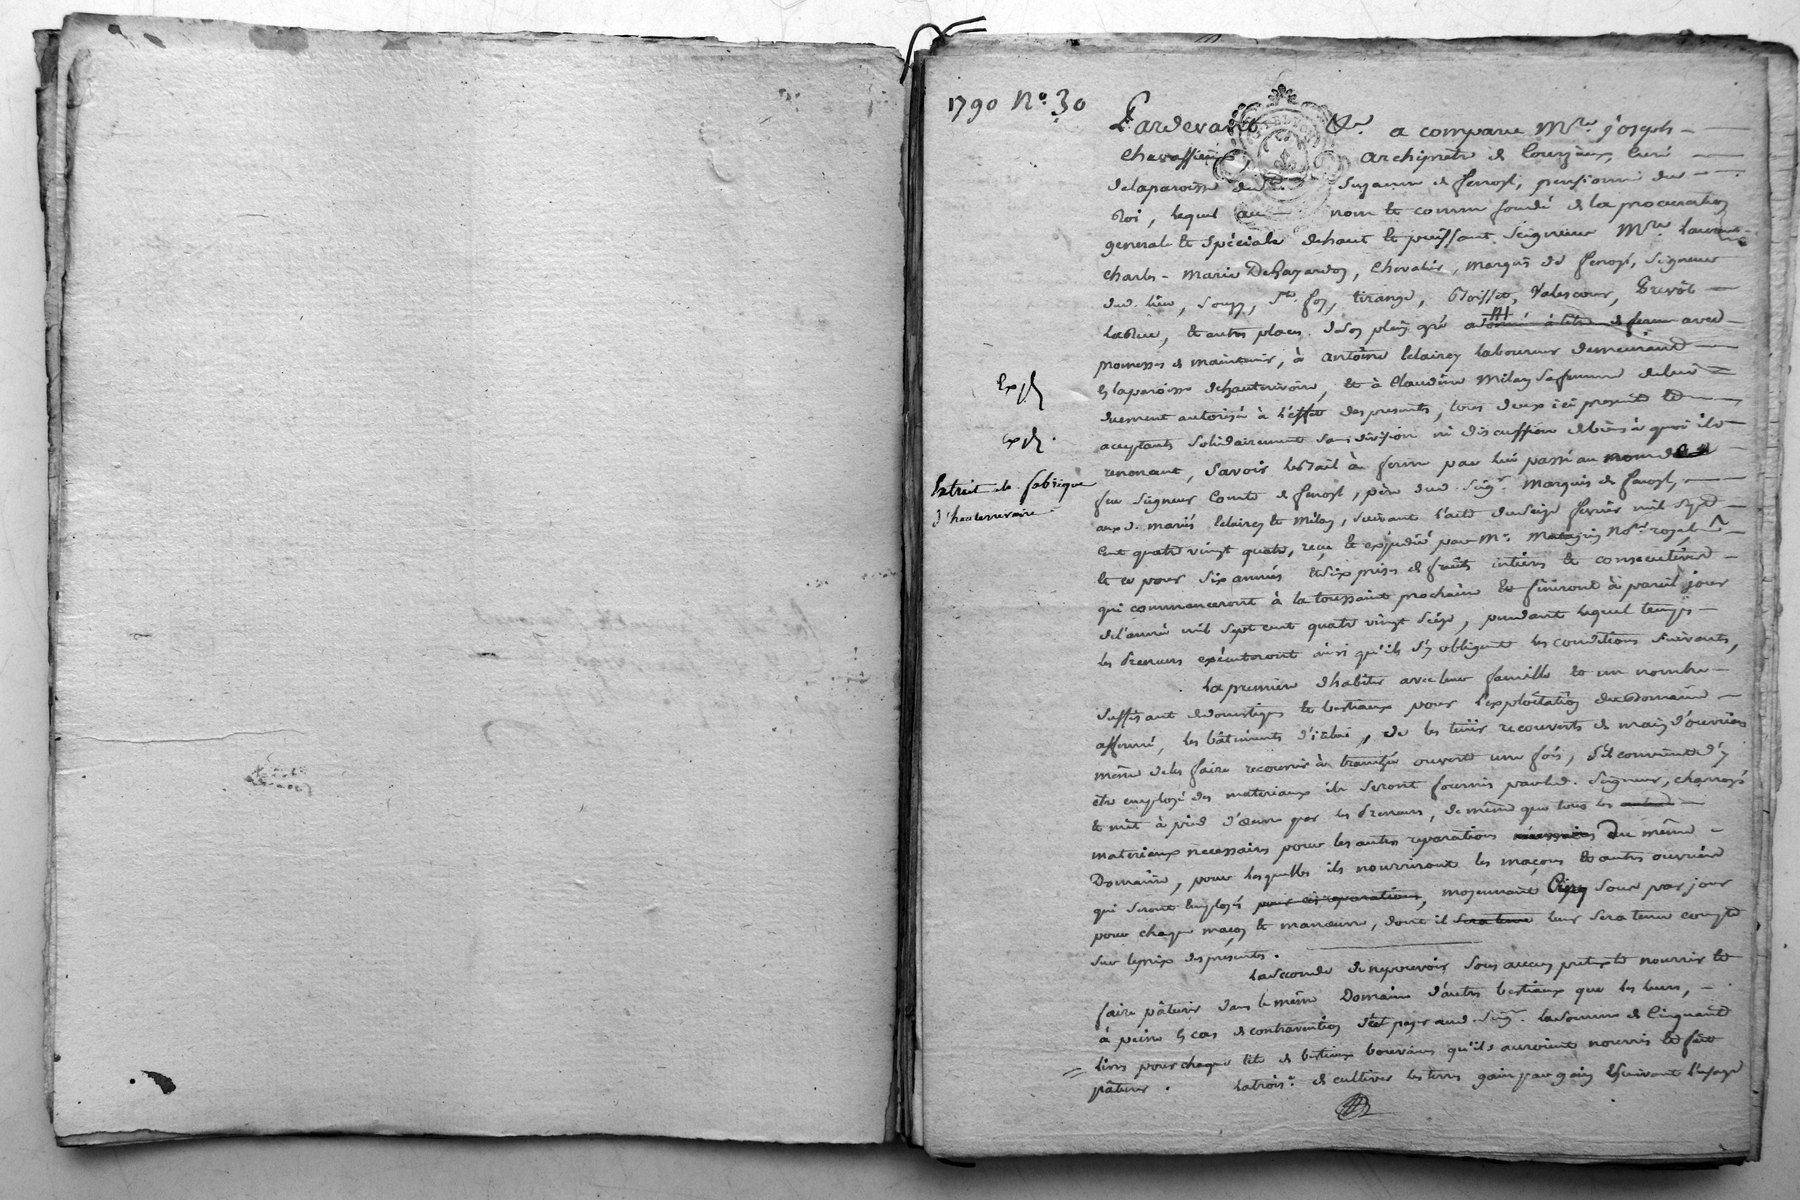 1790 N.° 30
Pardevant Nre a comparu Mre joseph
Chavassieux, archiprêtre de Courzieux, Curé
de la paroisse de Ste suzanne de fenoyl, pensionné du
Roi, lequel au nom et comme fondé de la procuration
generale et spéciale de haut et puissant Seigneur Mre Laurent
Charles-Marie DeGayardon, Chevalier, marquis de fenoyl, seigneur
dud. lieu, Souzy, Ste foy, tirange, Boisset, Valescour, Grevôt
et autres places. de son plein gré a donné à titre de ferme avec
promesses de maintenir, à antoine laboureur demeurant
en la paroisse dehauterivoire, et à Claudine Milan sa femme de lui
duement autorisée à l'effet des presentes, tous deux ici presents et
acceptants solidairement sans division ni discussion de biens à quoi ils
renoncent, savoir le Bail à ferme par lui passé au nom de
feu seigneur Comte de fenoyl, père dud. seigr marquis de fenoyl,
auxd. mariés et Milan, suivant l'acte du seize fevrier mil sept
cent quatre vingt quatre, reçu et expédié par Me Notre royal,
et ce pour six années et six prises de fruits entieres et consecutives
qui commenceront à la toussaint prochaine et finiront à pareil jour
de l'année mil sept cent quatre vingt seize, pendant lequel temps
les preneurs exécuteront ainsi qu'ils s'y obligent les conditions suivantes,
La premiere d'habiter avec leur famille et un nombre
suffisant de domestiques et bestiaux pour l'exploitation dud Domaine
affermé, les bâtiments d'icelui, de les tenir recouverts de main d'ouvriers
même de les faire recouvrir à tranchée ouverte une fois, s'il convient d'y
etre employé des materiaux ils seront fournis par led. Seigneur, charroyés
et mis à pied d'œuvre par les preneurs, de même que tous les
materiaux necessaires pour les autres reparations necessaires du même
Domaine, pour lesquelles ils nourriront les maçons et autres ouvriers
qui seront employés pour ces reparations, moyennant Cinq sous par jour
pour chaque maçon et manœuvre, dont il sera tenu leur sera tenu compte
sur le prix des presentes.
La seconde de ne pouvoir sous aucun pretexte nourrir et
faire pâturer dans le même Domaine d'autres bestiaux que les leurs,
à peine en cas de contravention de payer aud. seigr la somme de Cinquante
livres pour chaque tête de bestiaux qu'ils auroient nourris et fait
pâturer. La trois.e de cultiver les terres gain par gain et suivant l'usage
Expé
expé.
Extrait de fabrique
d'hauterivoire